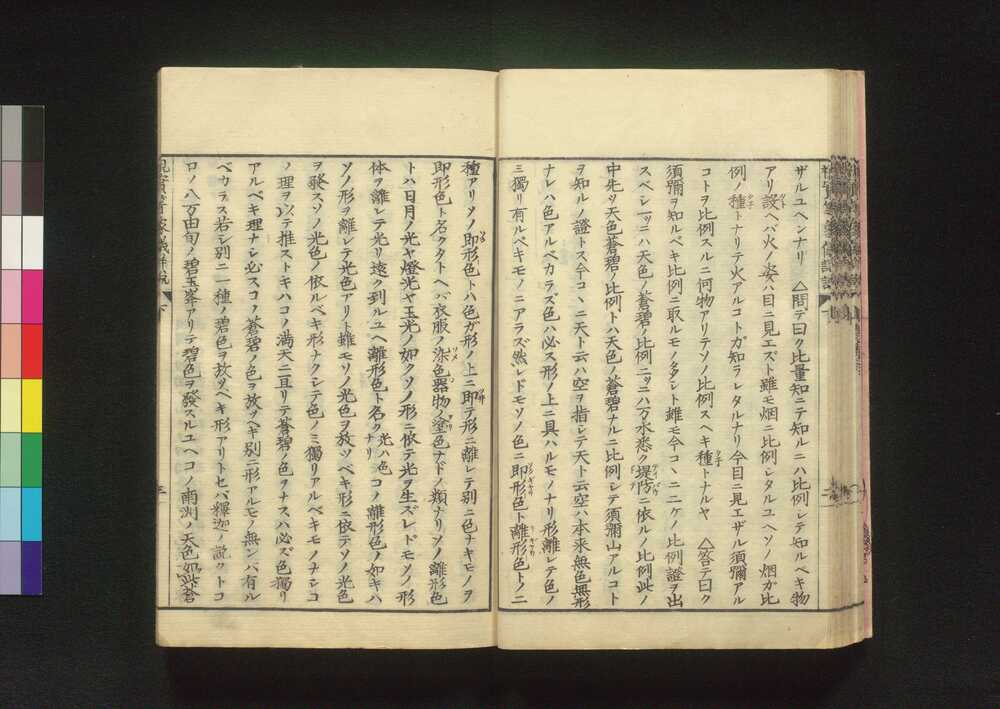 ザルユヘンナリ △問テ曰ク比量知ニテ知ルニハ比例シテ知ルベキ物
アリ設ヘバ火ノ姿ハ目ニ見エズト雖モ烟ニ比例シタルユヘソノ烟ガ比
例ノ種トナリテ火アルコトガ知ラレタルナリ今目ニ見エザル須彌アル
コトヲ比例スルニ何物アリテソノ比例スヘキ種トナルヤ △答テ曰ク
須彌ヲ知ルベキ比例ニ取ルモノ多シト雖モ今コヽニ二ケノ比例證ヲ出
スベシ一ツニハ天色ノ蒼碧ノ比例ニツニハ万水悉ク堤防ニ依ルノ比例此ノ
中先ツ天色蒼碧ノ比例トハ天色ノ蒼碧ナルニ比例シテ須彌山アルコト
ヲ知ルノ證トス今コヽニ天ト云ハ空ヲ指シテ天ト云空ハ本来無色無形
ナレハ色アルベカラズ色ハ必ス形ノ上ニ具ハルモノナリ形離レテ色ノ
ミ獨リ有ルベキモノニアラズ然レドモソノ色ニ即形色ト離形色トノ二
種アリソノ即形色トハ色ガ形ノ上ニ即テ形ニ離レテ別ニ色ナキモノヲ
即形色ト名クタトヘバ衣服ノ染色器物ノ塗色ナドノ類ナリソノ離形色
トハ日月ノ光ヤ燈光ヤ玉光ノ如クソノ形ニ依テ光ヲ生ズレドモソノ形
体ヲ離レテ光リ遠ク到ルユヘ離形色ト名ク光ハ色ナリコノ離形色ノ如キハ
ソノ形ヲ離レテ光色アリト雖モソノ光色ヲ放ツベキ形ニ依テソノ光色
ヲ發スソノ光色ノ依ルベキ形ナクシテ色ノミ獨リアルベキモノナシコ
ノ理ヲ以テ推ストキハコノ満天ニ亘リテ蒼碧ノ色ヲナスハ必ズ色獨リ
アルベキ理ナシ必スコノ蒼碧ノ色ヲ放ツヘキ別ニ形アルモノ無ンバ有ル
ベカラス若シ別ニ一種ノ碧色ヲ放ツヘキ形アリトセバ釋迦ノ説クトコ
ロノ八万由旬ノ碧玉峯アリテ碧色ヲ發スルユヘコノ南洲ノ天色如此蒼
下